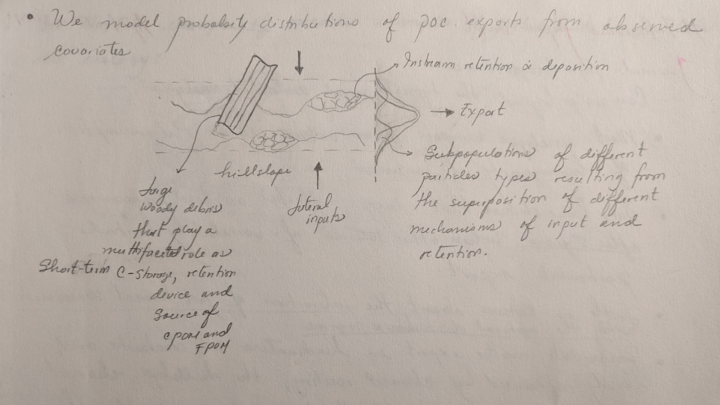 • We model probabilty distributions of POC exports from observed
covariates
Instream retention & deposition
Export
hillslope
lateral
inputs
Subpopulations of different
particles types resulting from
the superposition of different
mechanisms of input and
retention.
large
woody debris
that play a
multifaceted role as
Short-term C-storage, retention
device and
Source of
CPOM and
FPOM